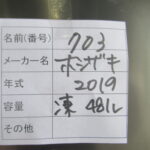 名前(番号) 703
メーカー名 ホシザキ
年式 2019
容量 凍 481L
その他